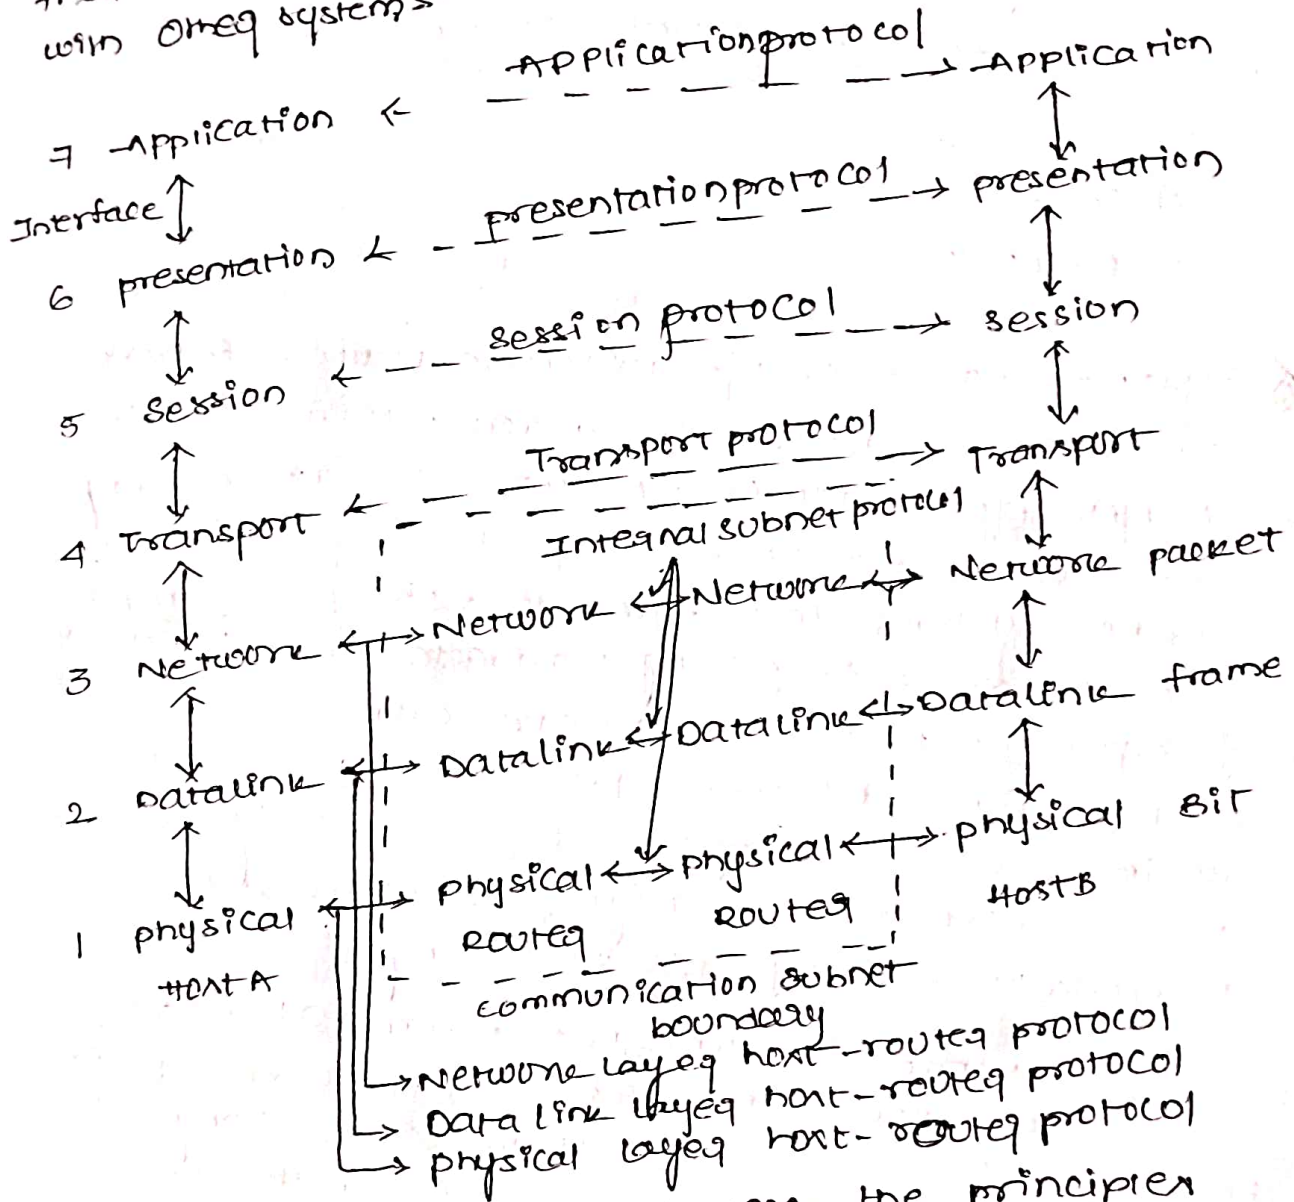 with other systems
Application protocol
7 Application Application
Interface
presentation protocol
6 presentation presentation
session protocol
5 session session
Transport protocol
4 Transport Transport
Internal subnet protocol
3 Network Network Network Network packet
2 Datalink Datalink Datalink Datalink frame
1 physical physical physical physical Bit
Host A Router Router Host B
communication subnet
boundary
Network layer host-router protocol
Data link layer host-router protocol
physical layer host-router protocol
the principles